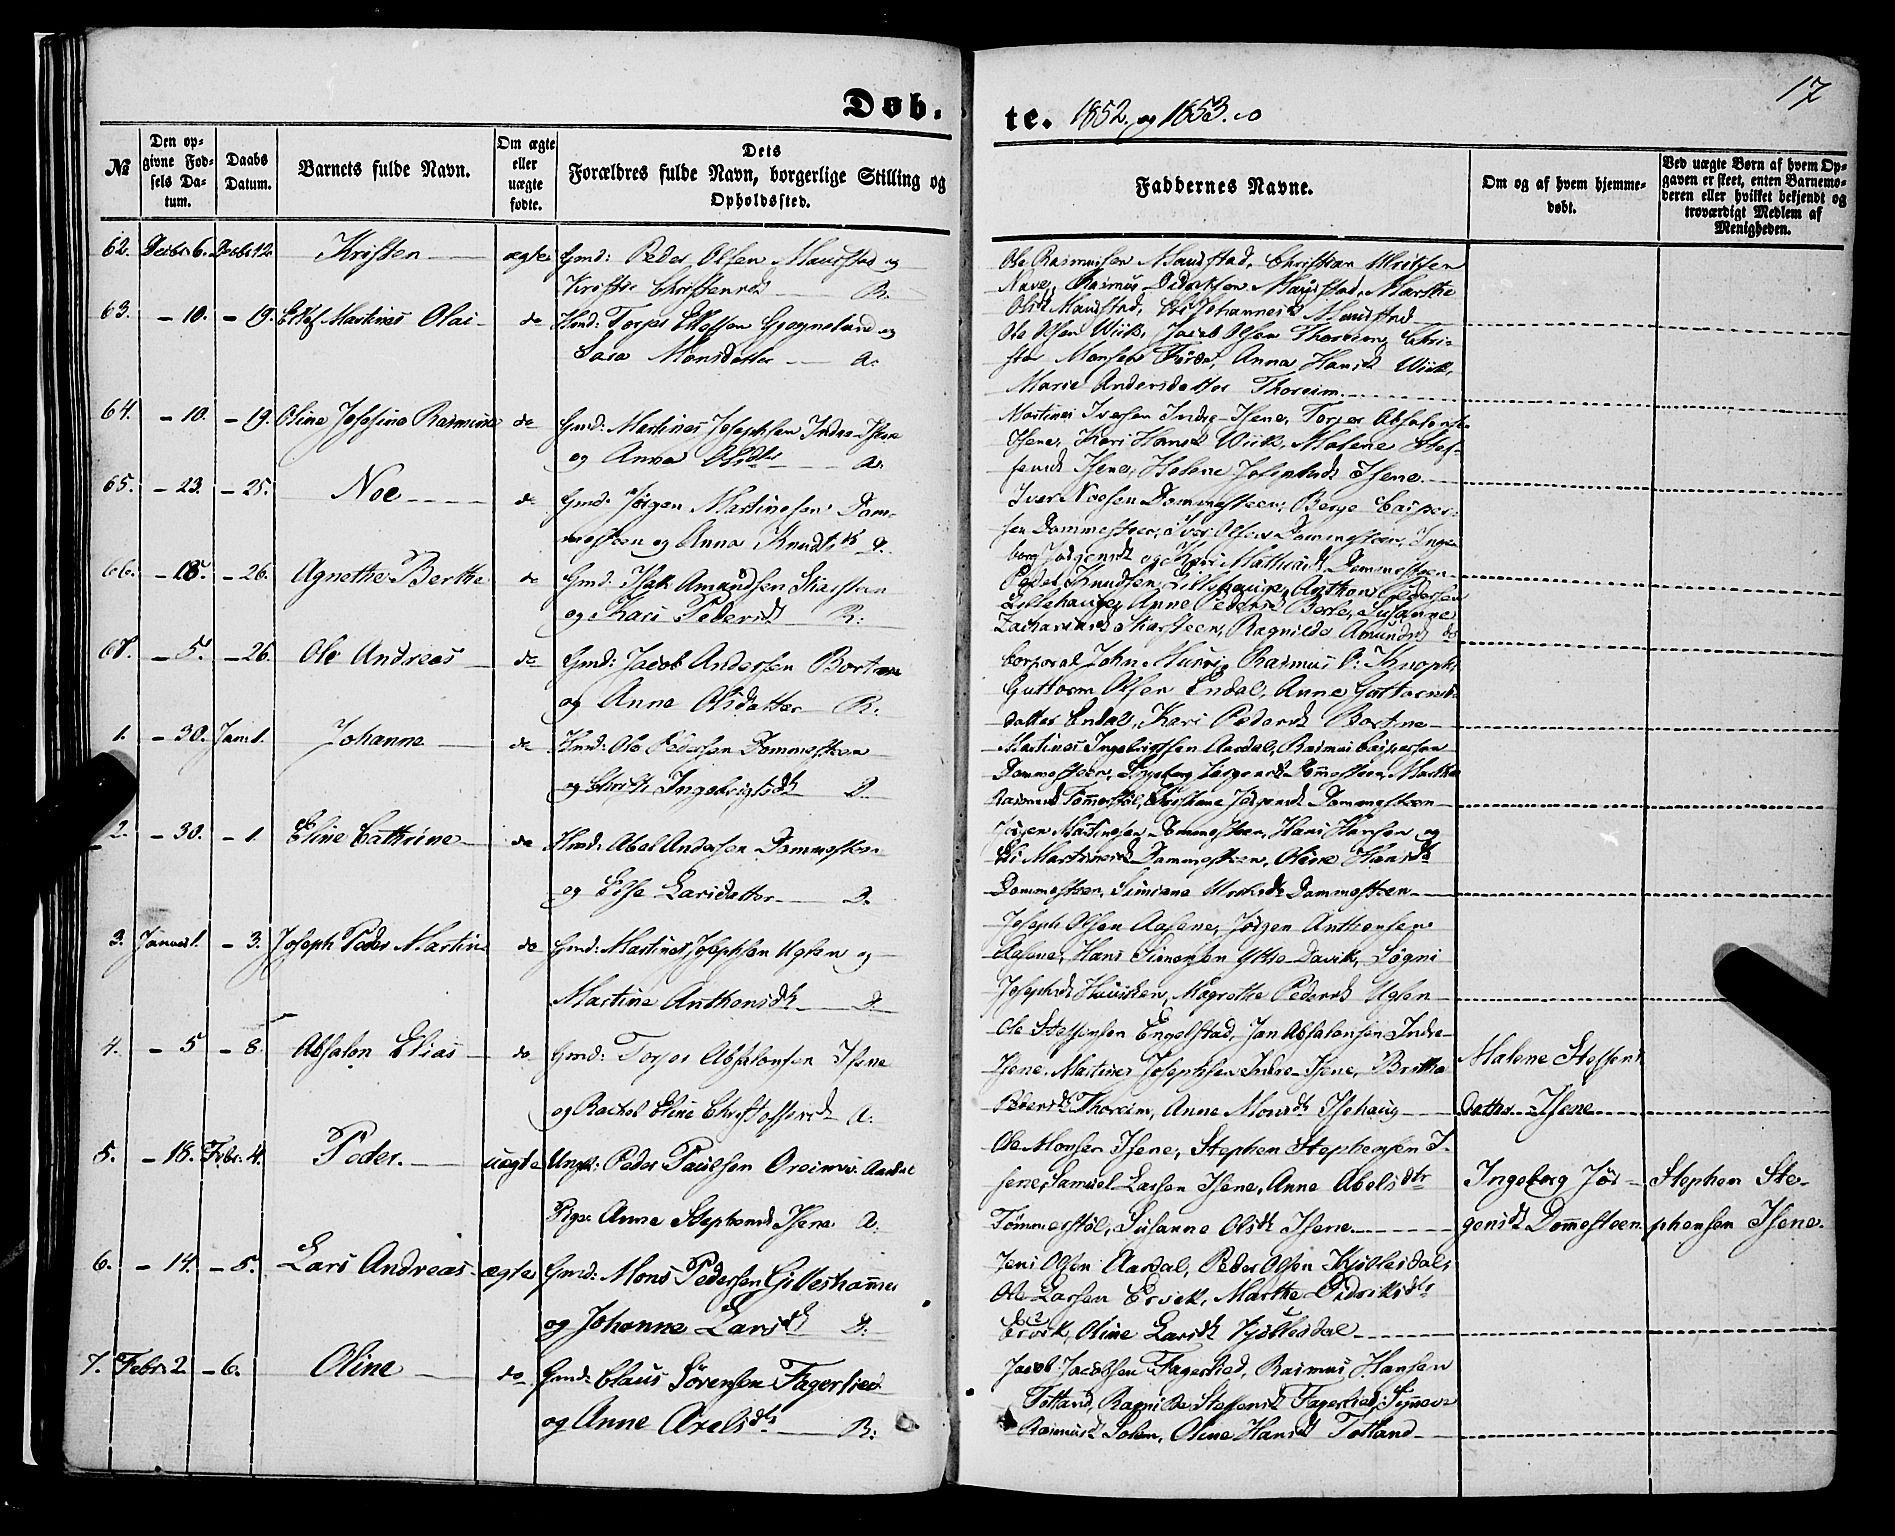 Døb-
te. 1852. og 1853.
17
No
Den op-
givne Fød-
sels Da-
tum.
Daabs
Datum.
Barnets fulde Navn.
Om ægte
eller
uægte
fødte.
Dets
Forældres fulde Navn, borgerlige Stilling og
Opholdssted.
Faddernes Navne.
Om og af hvem hjemme-
døbt.
Ved uægte Børn af hvem Op-
gaven er skeet, enten Barnemo-
deren eller hvilket bekjendt og
troværdigt Medlem af
Menigheden.
62. Decbr: 6. Decbr 12. Kristen ægte Gmd: Peder Olsen Maurstad og
Kristi Christensd R:
Ole Rasmussen Maurstad, Christian
Nave, Rasmus Didriksen Maurstad, Marthe
Olsd Maurstad, Johannesd Maurstad
63. - 10. - 19. Ellef Martinus Olai do Hmd: Torger Ellefsen Gjegnelund og
Sara Monsdatter A:
Ole Olsen Wiik, Jacob Olsen Thoreim, Chri-
sten Monsen Førde, Anna Hansd Wiik,
Marie Andersdatter Thoreim.
64. - 10. - 19. Oline Josefine Rasmine do Gmd: Martinus Josephsen Indre-Isene
og Anna Olsdtr A:
Martines Iversen Indre-Isene, Torger Absalonsen
Isene, Kari Hansd Wiik, Malene Stef-
fensd Isene, Helene Josephsd Isene.
65. - 23. - 25. Noe do Gmd: Jørgen Martinesen Dom-
mesteen og Anna Knudsd D.
Iver Noesen Dommesteen, Berge Casper-
sen Dommesteen, Iver Olsen Dommesteen, Inge-
borg Jørgensd og Kari Mathiasd Dommesteen
66. - 18. - 26. Agnethe Berthe do Gmd: Isak Amundsen Skarsteen
og Kari Pedersd R:
Peder Knudsen Lillehauge, Anthon Pedersen
Lillehauge, Anne Pedersd Berle, Susanne
Zachariasd Skarsteen, Ragnilde Amundsd do
67. - 5. - 26. Ole Andreas do Gmd: Jacob Andersen Bortne
og Anna Olsdatter R:
Corporal John Muri, Rasmus P: Knoph,
Guttorm Olsen Endal, Anne Guttorms-
datter Endal, Kari Pedersd Bortne
1. - 30. Jan: 1. Johanne do Hmd: Ole Pedersen Dommesteen
og Ingebrigtsd D.
Martines Ingebrigtsen Aardal, Rasmus Caspersen
Dommesteen, Ingeborg Jørgensd Dommesteen, Marthe
Rasmusd Tømmerstøl, Jørgensd Dommesteen
2. - 30. - 1. Eline Cathrine do Hmd: Abel Andersen Dommesteen
og Else Larsdatter D.
Jørgen Martinesen Dommesteen, Hans Hansen og
Martinesd Dommesteen, Oline Hansd
Dommesteen, Dommesteen
3. Januar 1. - 3. Joseph Peder Martin do Gmd: Martines Josephsen Ugsen og
Martine Anthonsd D.
Joseph Olsen Aasene, Jørgen Anthonsen
Aasene, Hans Simonsen Ytre Davik, Søgni
Josephsd Hauisten, Magrethe Pedersd Ugsen
4. - 5 - 8. Absalon Elias do Gmd: Torger Absalonsen Isene
og Rachel Eline Christoffersd A:
Ole Steffensen Engelstad, Jan Absalonsen Indre-
Isene, Martines Josephsen Indre-Isene, Britha
Pedersd Thoreim, Anne Monsd Isehaug
Malene Steffens
datter Isene
5. - 18. Febr: 4. Peder. uægte Ungk: Peder Paulsen Aardal
Pige Anne Stephensd Isene A:
Ole Monsen Isene, Stephen Stephensen I-
sene, Samuel Larsen Isene, Anne Abelsdtr
Tømmerstøl, Susanne Olsd Isene
Ingeborg Jør-
gensd Dommesteen.
Stephen Ste-
phensen Isene.
6. - 14. - 5. Lars Andreas ægte Gmd: Mons Pedersen Gilleshammer
og Johanne Larsd D.
Jens Olsen Aardal, Peder Olsen Hjellesdal,
Ole Larsen Ervik, Marthe Didriksdtr
Ervik, Oline Larsd Hjellesdal
7. Febr: 2 - 6. Oline do Gmd: Claus Sørensen Fagerlied
og Anne Axelsdtr R:
Jacob Jacobsen Fagerlied, Rasmus Hansen
Totland, Ragnilde Steffensd Fagerlied, Synneve
Rasmusd, Oline Hansd Totland